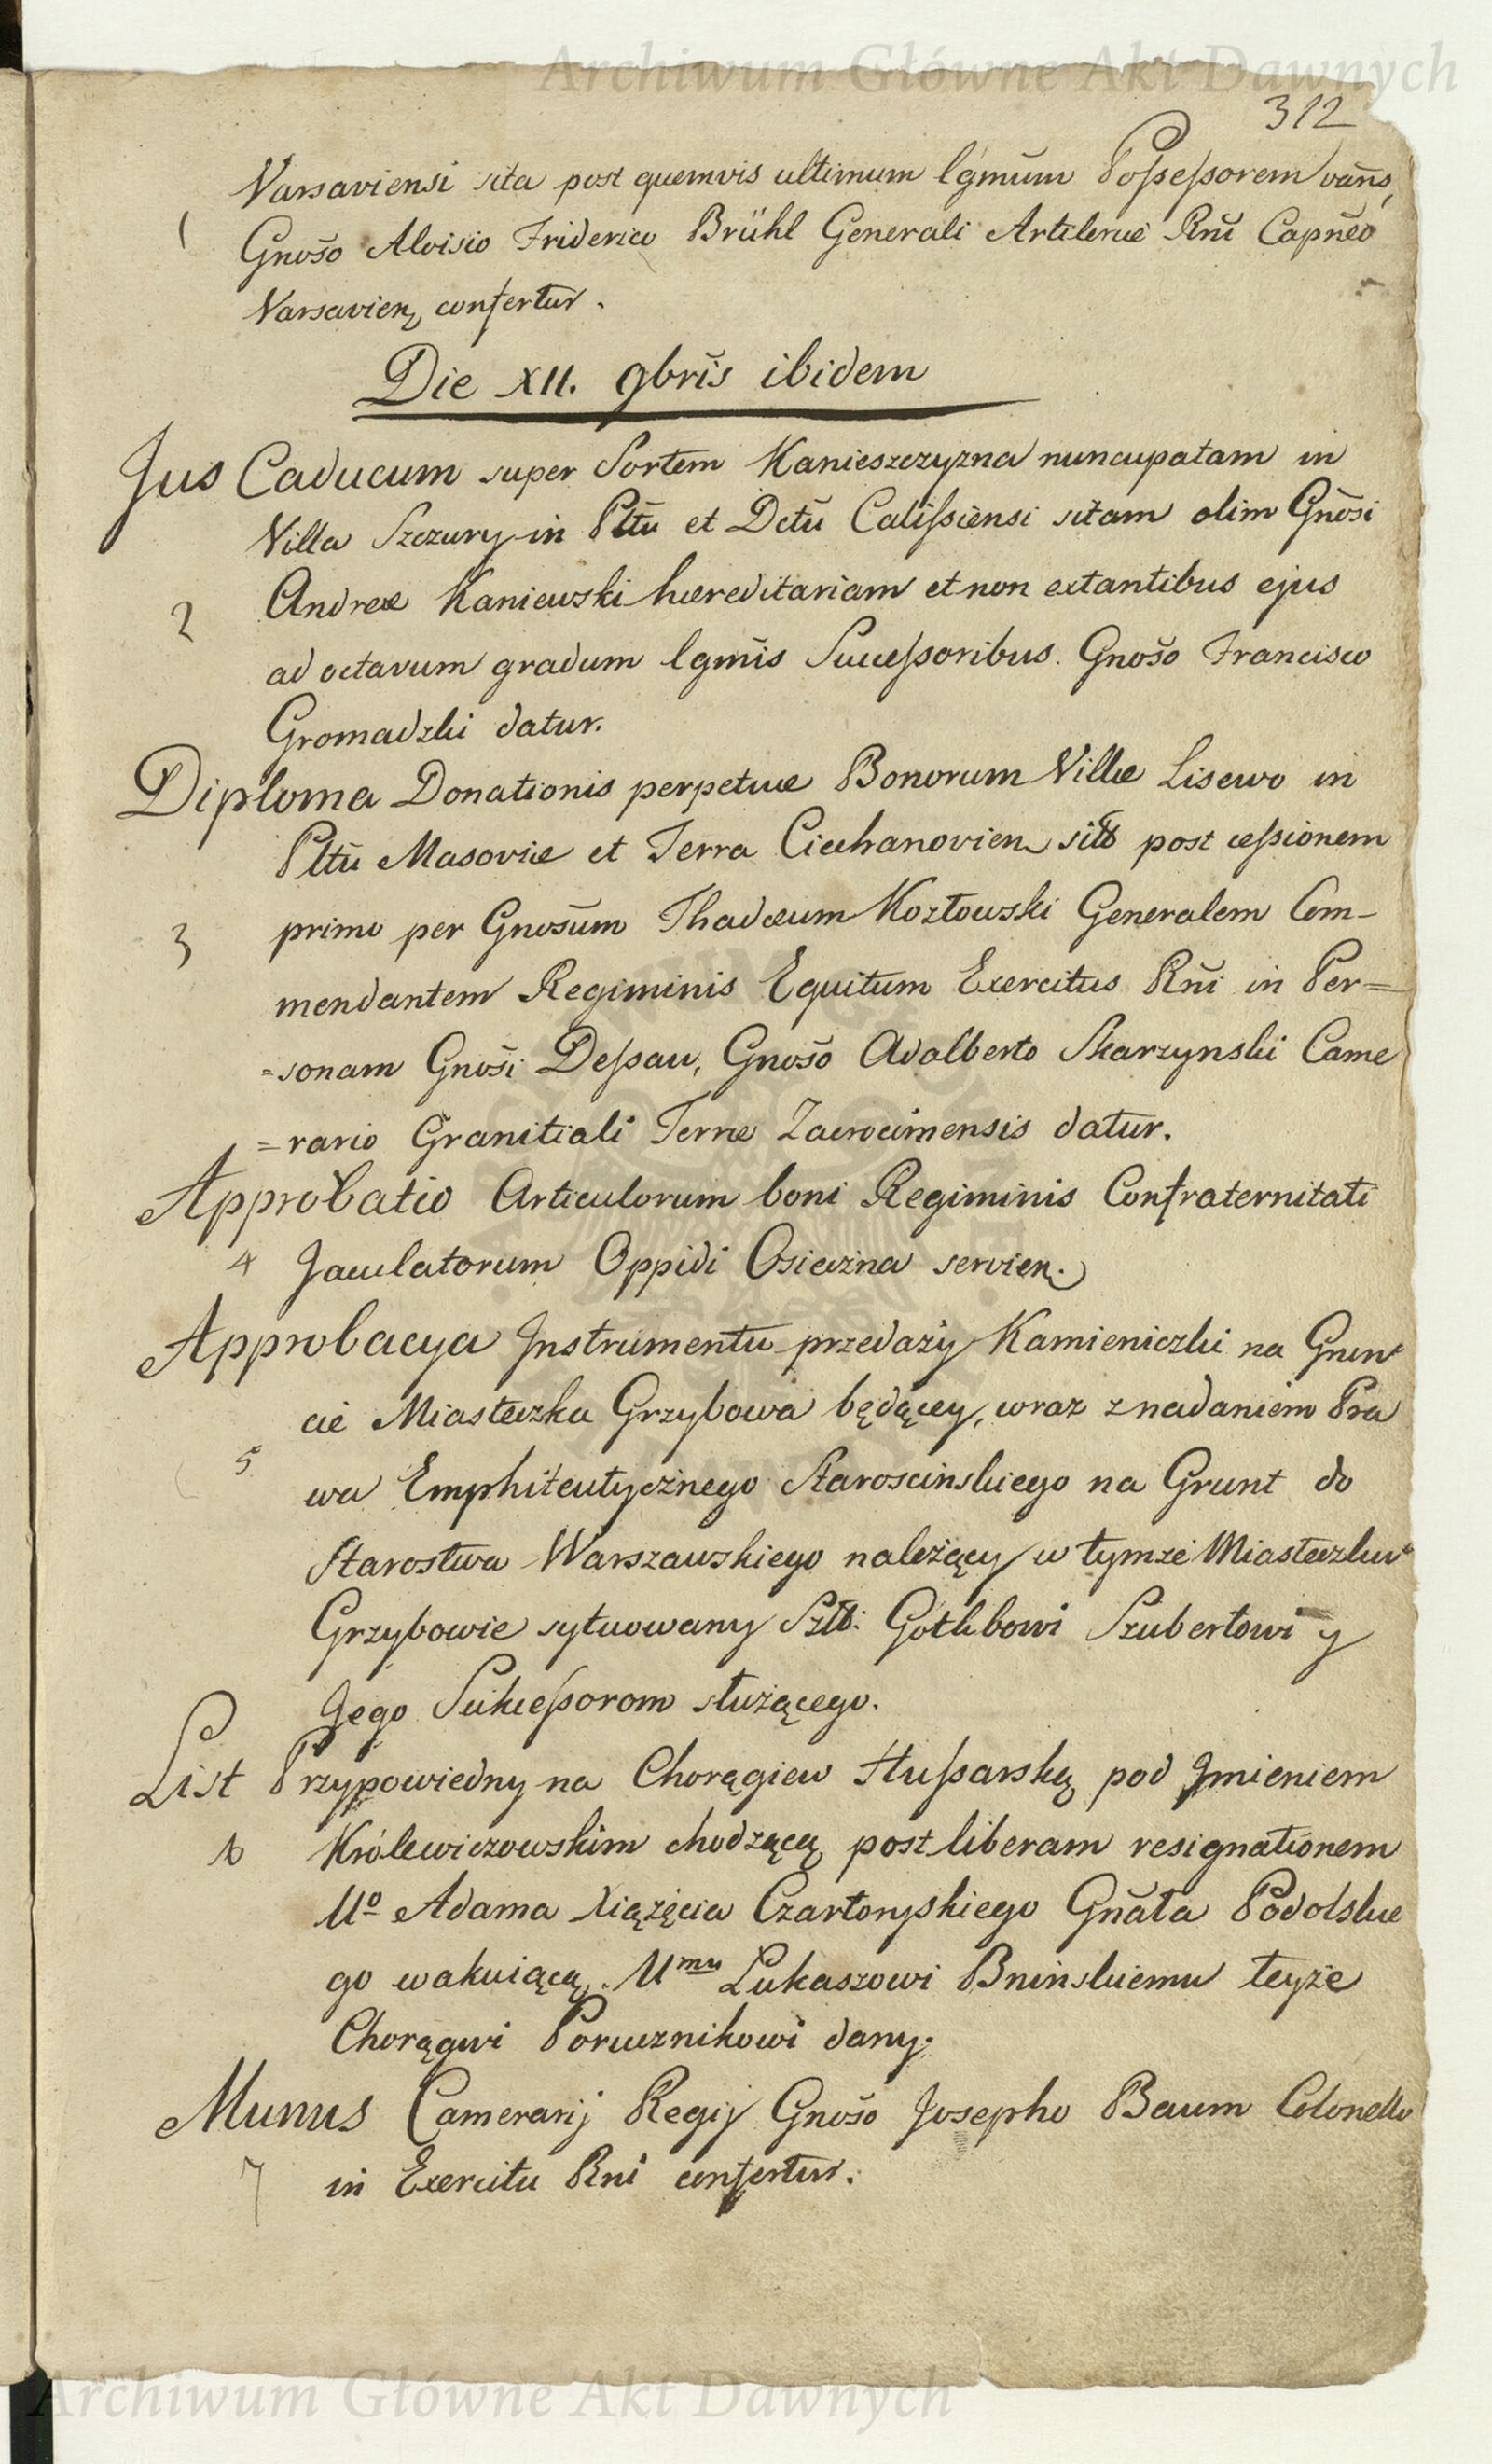 Archiwum Główne Akt Dawnych
312
Varsaviensi sita post quemvis ultimum lgmūm Possessorem vāns,
1 Gnošo Aloisio Friderico Brühl Generali Artileriæ Rñi Capnēo
Varsavien, confertur.
Die XII. 9bris ibidem
Jus Caducum super Sortem Kanieszczyzna nuncupatam in
Villa Szczury in Pltū et Dctū Calissiensi sitam olim Gnōsi
2 Andreæ Kaniewski hæreditariam et non extantibus ejus
ad octavum gradum lgmīs Successoribus. Gnošo Francisco
Gromadzki datur.
Diploma Donationis perpetuæ Bonorum Villæ Lisewo in
Pltū Masoviæ et Terra Ciechanovien sitō post cessionem
3 primo per Gnosūm Thadæum Kozłowski Generalem Com-
mendantem Regiminis Equitum Exercitus Rñi in Per=
=sonam Gnoši Dessau, Gnošo Adalberto Skarzynski Came
=rario Granitiali Terræ Zacrocimensis datur.
Approbatio Articulorum boni Regiminis Confraternitati
4 Jaculatorum Oppidi Osieczna servien.
Approbacya Instrumentu przedaży Kamieniczki na Grun
cie Miasteczka Grzybowa będącey, wraz z nadaniem Pra
5 wa Emphiteutycznego Staroscinskiego na Grunt do
Starostwa Warszawskiego należący w tymże Miasteczku
Grzybowie sytuowany Sztō: Gotlibowi Szubertowi y
Jego Sukcessorom służącego.
List Przypowiedny na Chorągiew Hussarską pod Jmieniem
6 Królewiczowskim chodzącą post liberam resignationem
Uº Adama Xiążęcia Czartoryskiego Gñała Podolskie
go wakuiącą. Uᵐᵘ Łukaszowi Bninskiemu teyże
Chorągwi Porucznikowi dany.
Munus Camerarij Regij Gnošo Josepho Baum Colonello
7 in Exercitu Rni confertur.
Archiwum Główne Akt Dawnych